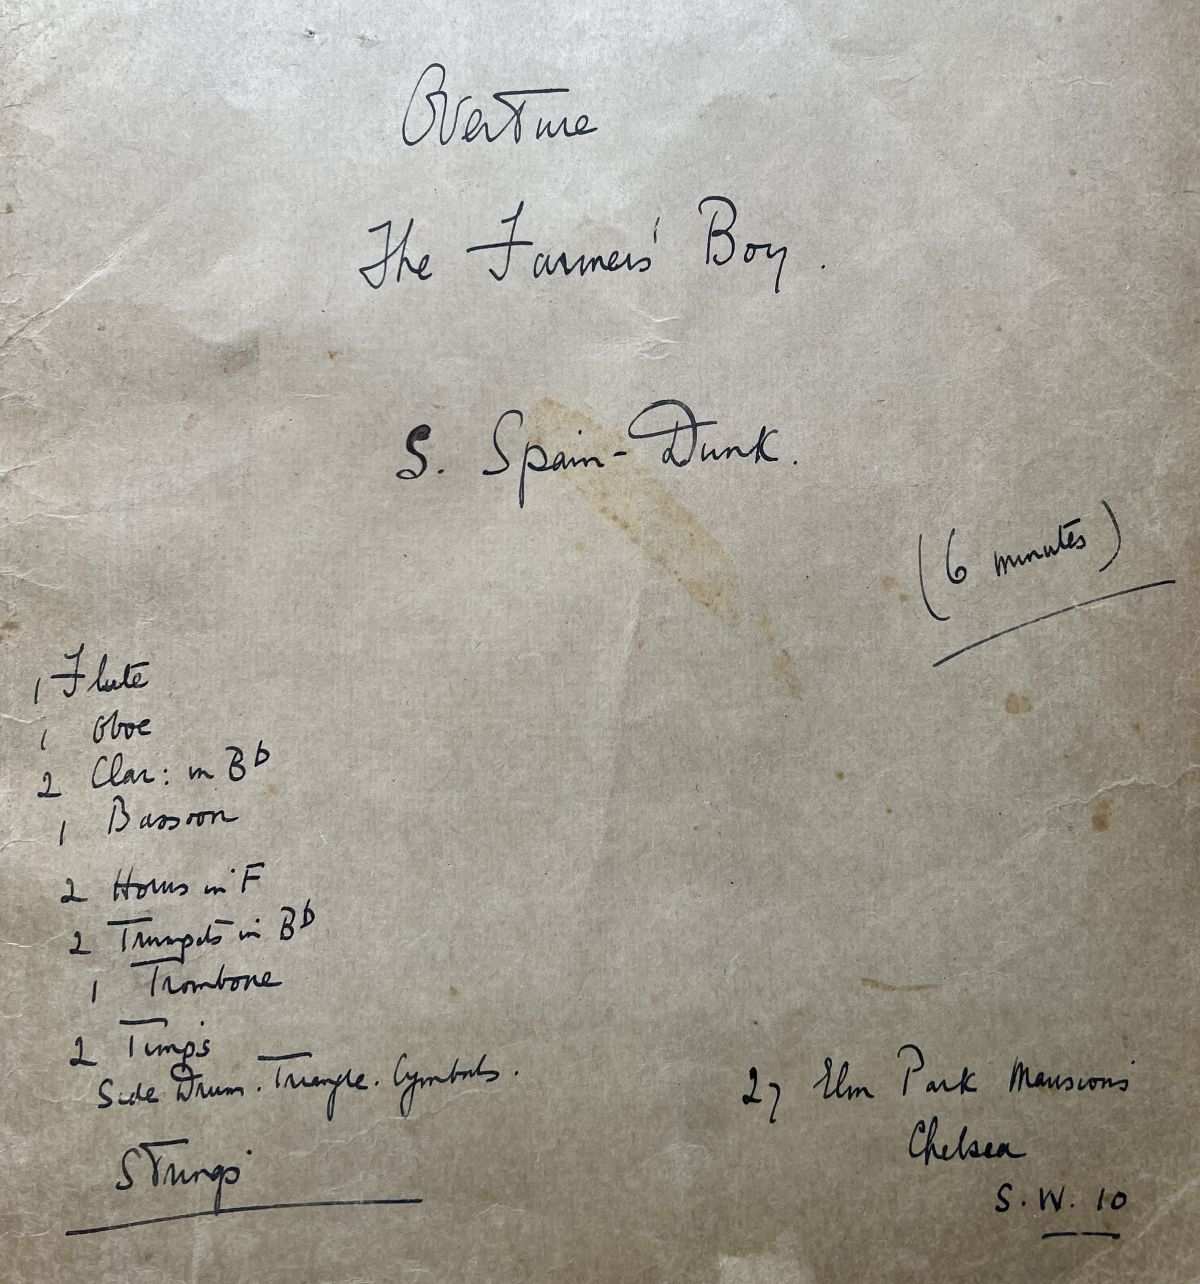 Overture
The Farmer's Boy.
S. Spain-Dunk.
(6 minutes)
1 Flute
1 Oboe
2 Clar: in B♭
1 Bassoon
2 Horns in F
2 Trumpets in B♭
1 Trombone
2 Timps
Side Drum. Triangle. Cymbals.
Strings
27 Elm Park Mansions
Chelsea
S.W. 10